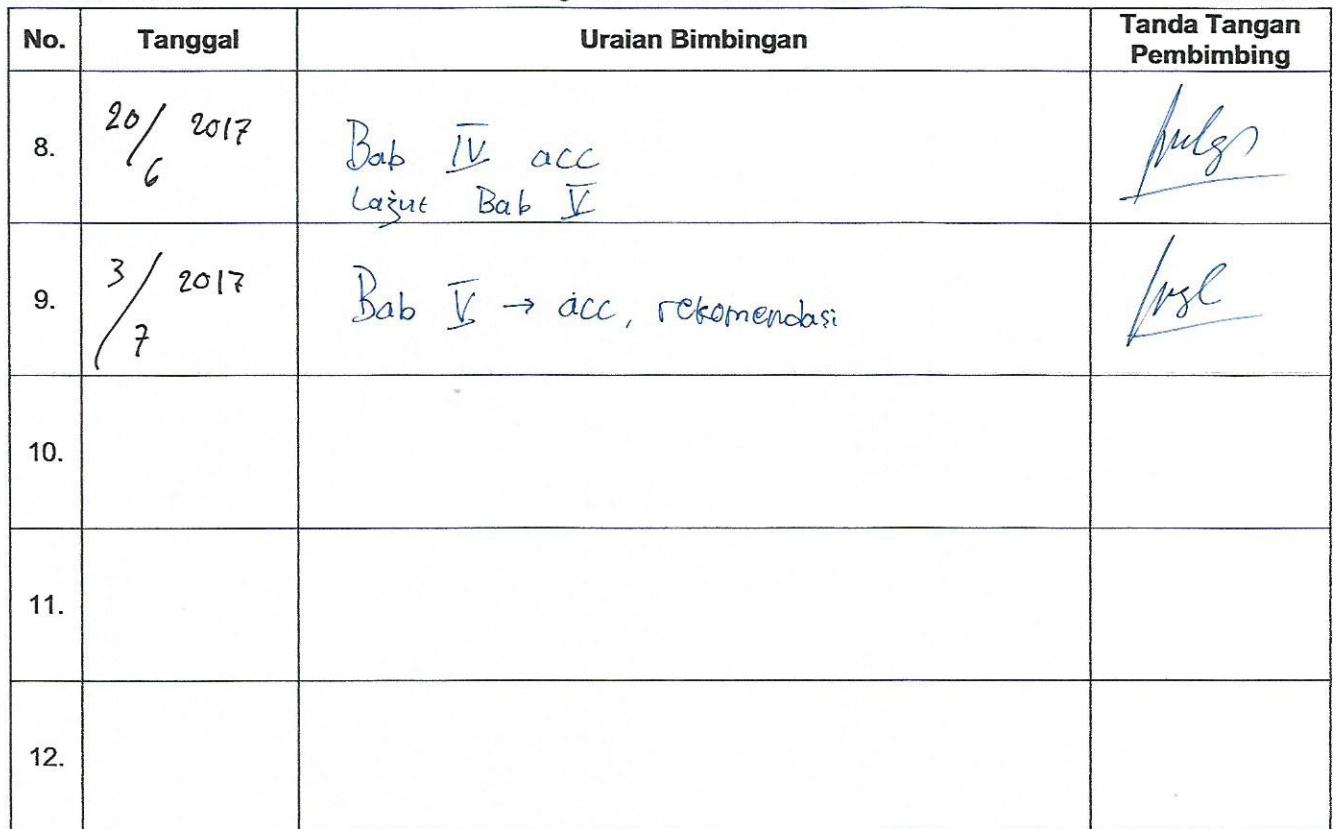 No. Tanggal Uraian Bimbingan Tanda Tangan
Pembimbing
8. 20/6 2017 Bab IV acc
Lajut Bab V
9. 3/7 2017 Bab V → acc, rekomendasi
10.
11.
12.